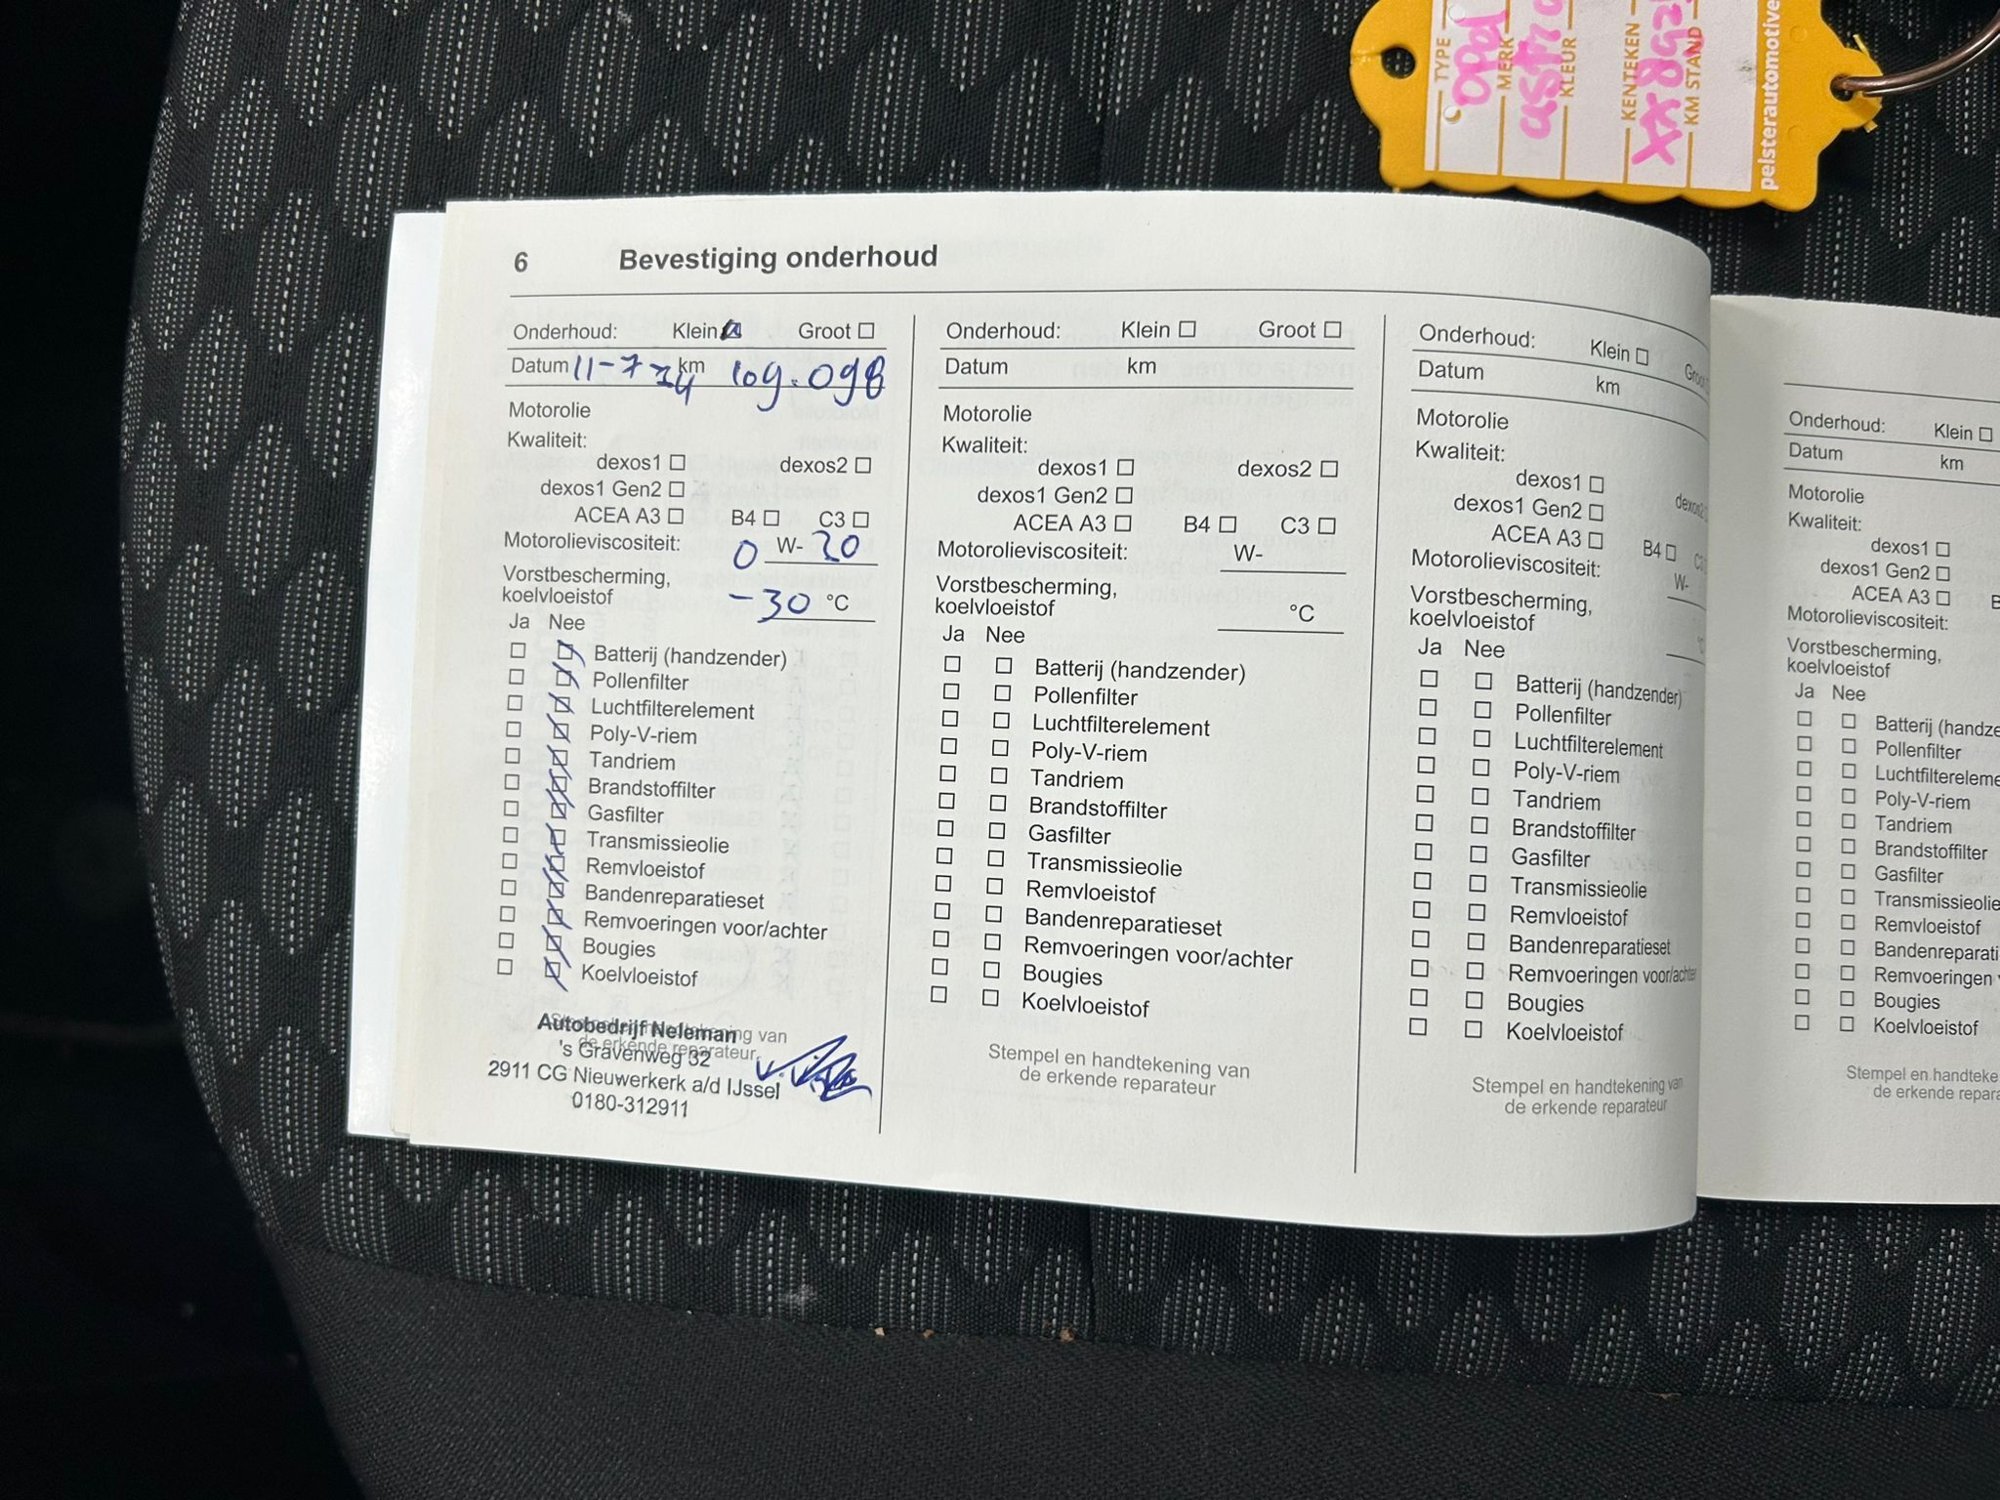 TYPE
opel
MERK
astra
KLEUR
KENTEKEN
KM STAND
pelsterautomotive
6 Bevestiging onderhoud
Onderhoud: Klein Groot
Datum 11-7-24 km 109.098
Motorolie
Kwaliteit:
dexos1 dexos2
dexos1 Gen2
ACEA A3 B4 C3
Motorolieviscositeit: 0 W- 20
Vorstbescherming,
koelvloeistof -30 °C
Ja Nee
Batterij (handzender)
Pollenfilter
Luchtfilterelement
Poly-V-riem
Tandriem
Brandstoffilter
Gasfilter
Transmissieolie
Remvloeistof
Bandenreparatieset
Remvoeringen voor/achter
Bougies
Koelvloeistof
Stempel en handtekening van
de erkende reparateur
Autobedrijf Neleman
's Gravenweg 32
2911 CG Nieuwerkerk a/d IJssel
0180-312911
Onderhoud: Klein Groot
Datum km
Motorolie
Kwaliteit:
dexos1 dexos2
dexos1 Gen2
ACEA A3 B4 C3
Motorolieviscositeit: W-
Vorstbescherming,
koelvloeistof °C
Ja Nee
Batterij (handzender)
Pollenfilter
Luchtfilterelement
Poly-V-riem
Tandriem
Brandstoffilter
Gasfilter
Transmissieolie
Remvloeistof
Bandenreparatieset
Remvoeringen voor/achter
Bougies
Koelvloeistof
Stempel en handtekening van
de erkende reparateur
Onderhoud: Klein
Datum km
Motorolie
Kwaliteit:
dexos1
dexos1 Gen2
ACEA A3 B4
Motorolieviscositeit: W-
Vorstbescherming,
koelvloeistof
Ja Nee
Batterij (handzender)
Pollenfilter
Luchtfilterelement
Poly-V-riem
Tandriem
Brandstoffilter
Gasfilter
Transmissieolie
Remvloeistof
Bandenreparatieset
Remvoeringen voor/achter
Bougies
Koelvloeistof
Stempel en handtekening van
de erkende reparateur
Onderhoud: Klein
Datum km
Motorolie
Kwaliteit:
dexos1
dexos1 Gen2
ACEA A3
Motorolieviscositeit:
Vorstbescherming,
koelvloeistof
Ja Nee
Batterij (handze
Pollenfilter
Luchtfiltereleme
Poly-V-riem
Tandriem
Brandstoffilter
Gasfilter
Transmissieolie
Remvloeistof
Bandenreparati
Remvoeringen
Bougies
Koelvloeistof
Stempel en handteke
de erkende repara